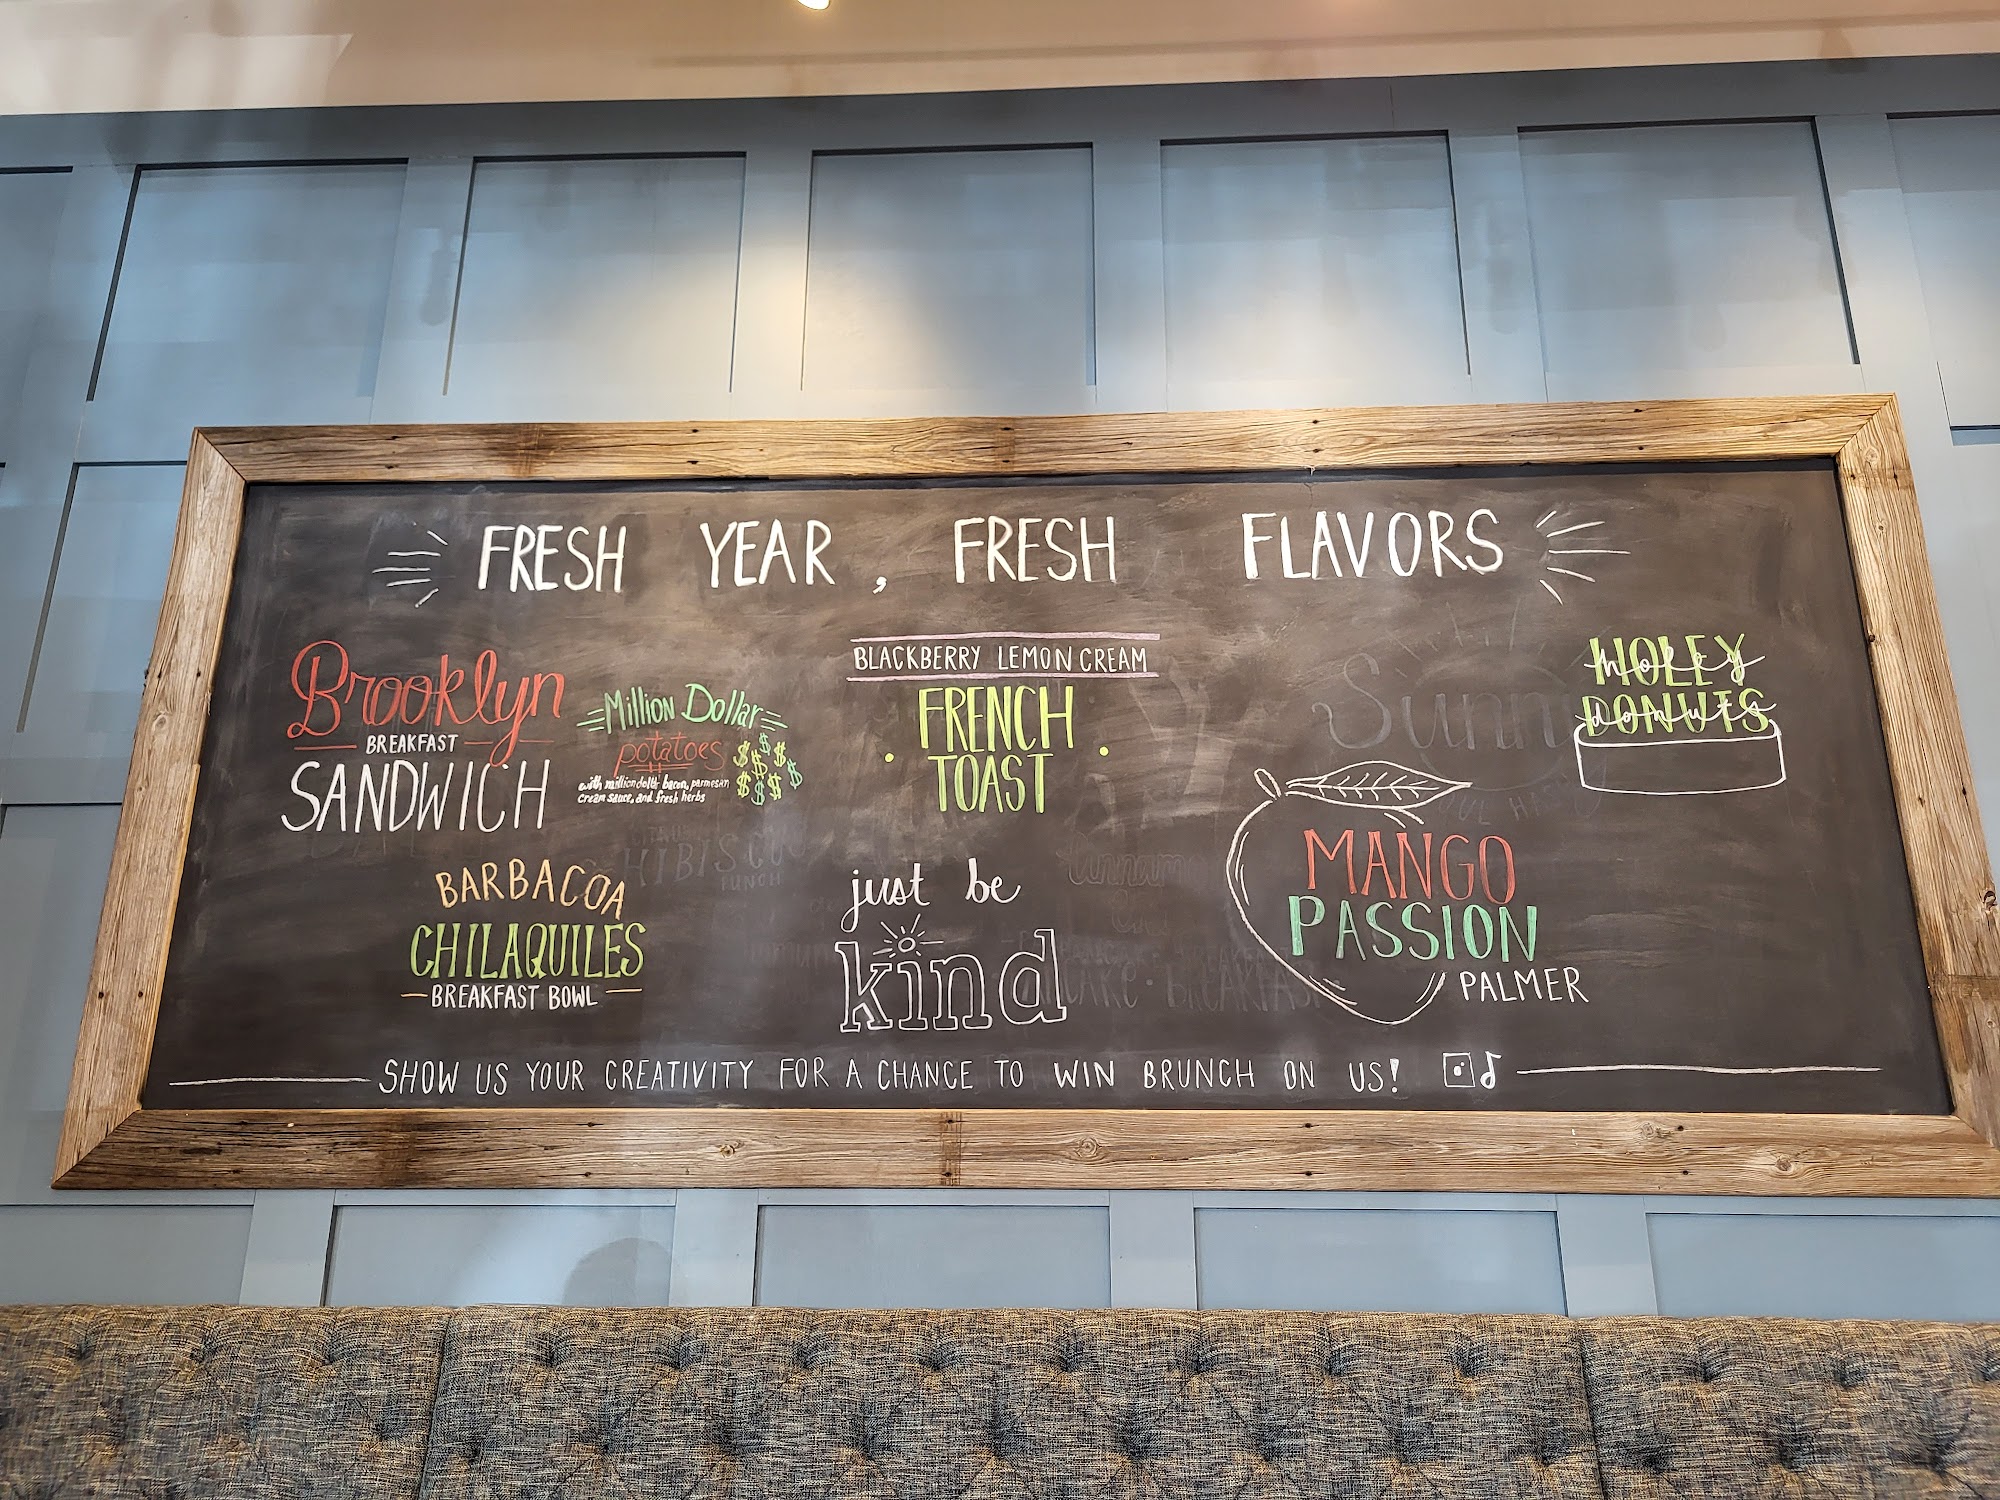 FRESH YEAR, FRESH FLAVORS
Brooklyn
BREAKFAST
SANDWICH
Million Dollar
potatoes
with million dollar bacon, parmesan
cream sauce, and fresh herbs
$ $ $ $ $ $ $ $ $ $ $
BLACKBERRY LEMON CREAM
FRENCH
TOAST
HOLEY
holey
DONUTS
donuts
BARBACOA
CHILAQUILES
BREAKFAST BOWL
just be
kind
MANGO
PASSION
PALMER
Sunny
HIBISCUS
PUNCH
SHOW US YOUR CREATIVITY FOR A CHANCE TO WIN BRUNCH ON US!